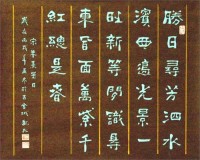 勝日尋芳泗水
濱無邊光景一
時新等閒識得
東風面萬紫千
紅總是春
宋朱熹春日